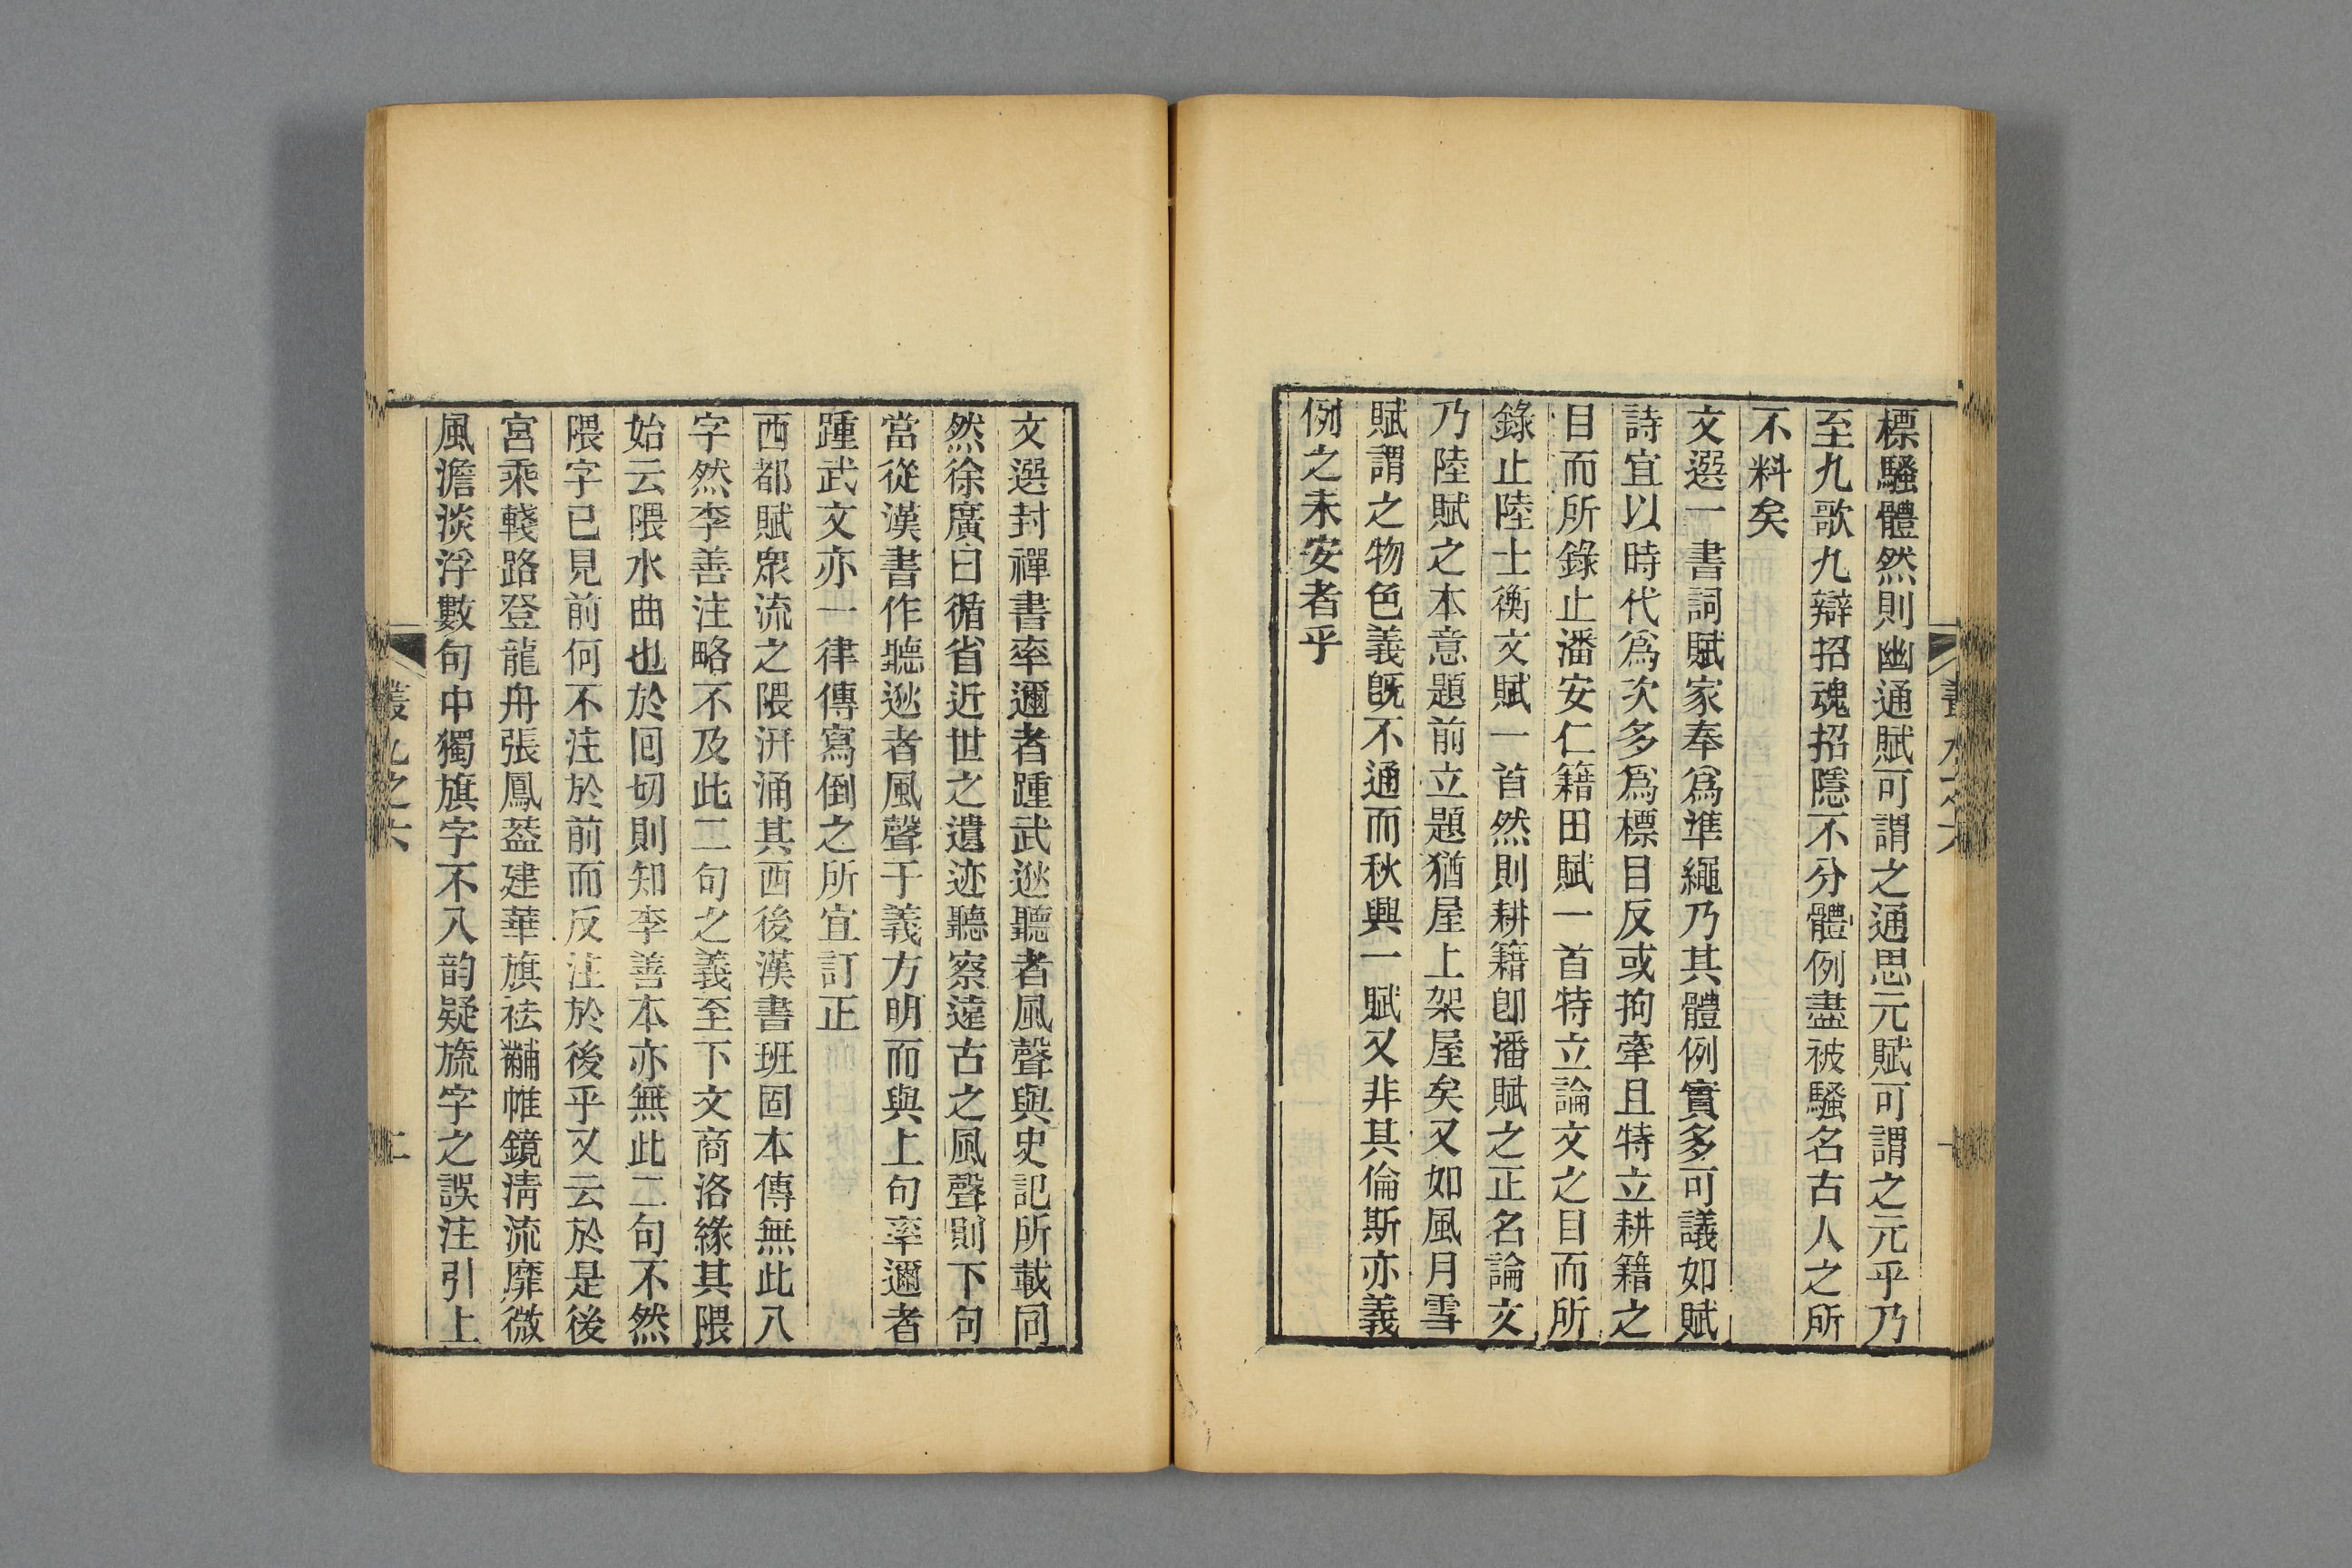 標騷體然則幽通賦可謂之通思元賦可謂之元乎乃
至九歌九辯招魂招隱不分體例盡被騷名古人之所
不料矣
文選一書詞賦家奉爲準繩乃其體例實多可議如賦
詩宜以時代爲次多爲標目反或拘牽且特立耕籍之
目而所錄止潘安仁籍田賦一首特立論文之目而所
錄止陸士衡文賦一首然則耕籍卽潘賦之正名論文
乃陸賦之本意題前立題猶屋上架屋矣又如風月雪
賦謂之物色義旣不通而秋興一賦又非其倫斯亦義
例之未安者乎
文選封禪書率邇者踵武逖聽者風聲與史記所載同
然徐廣曰循省近世之遺迹聽察遠古之風聲則下句
當從漢書作聽逖者風聲于義方明而與上句率邇者
踵武文亦一律傳寫倒之所宜訂正
西都賦衆流之隈汧涌其西後漢書班固本傳無此八
字然李善注略不及此二句之義至下文商洛緣其隈
始云隈水曲也於囘切則知李善本亦無此二句不然
隈字已見前何不注於前而反注於後乎又云於是後
宮乘輚路登龍舟張鳳葢建華旗祛黼帷鏡淸流靡微
風澹淡浮數句中獨旗字不入韵疑旒字之誤注引上
叢九之六
二